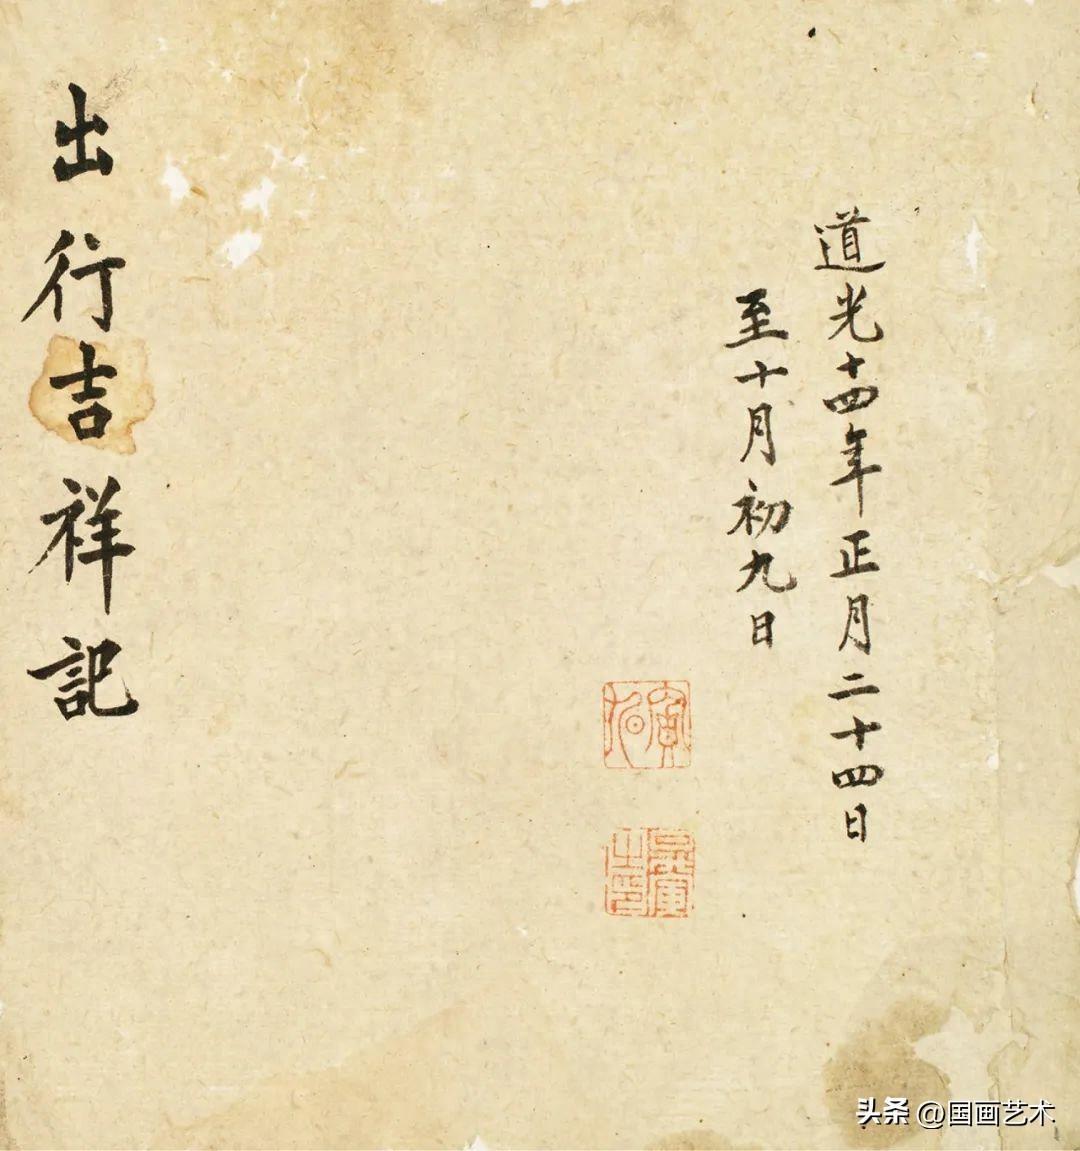 道光十四年正月二十四日
至十月初九日
出行吉祥記
头条 @国画艺术